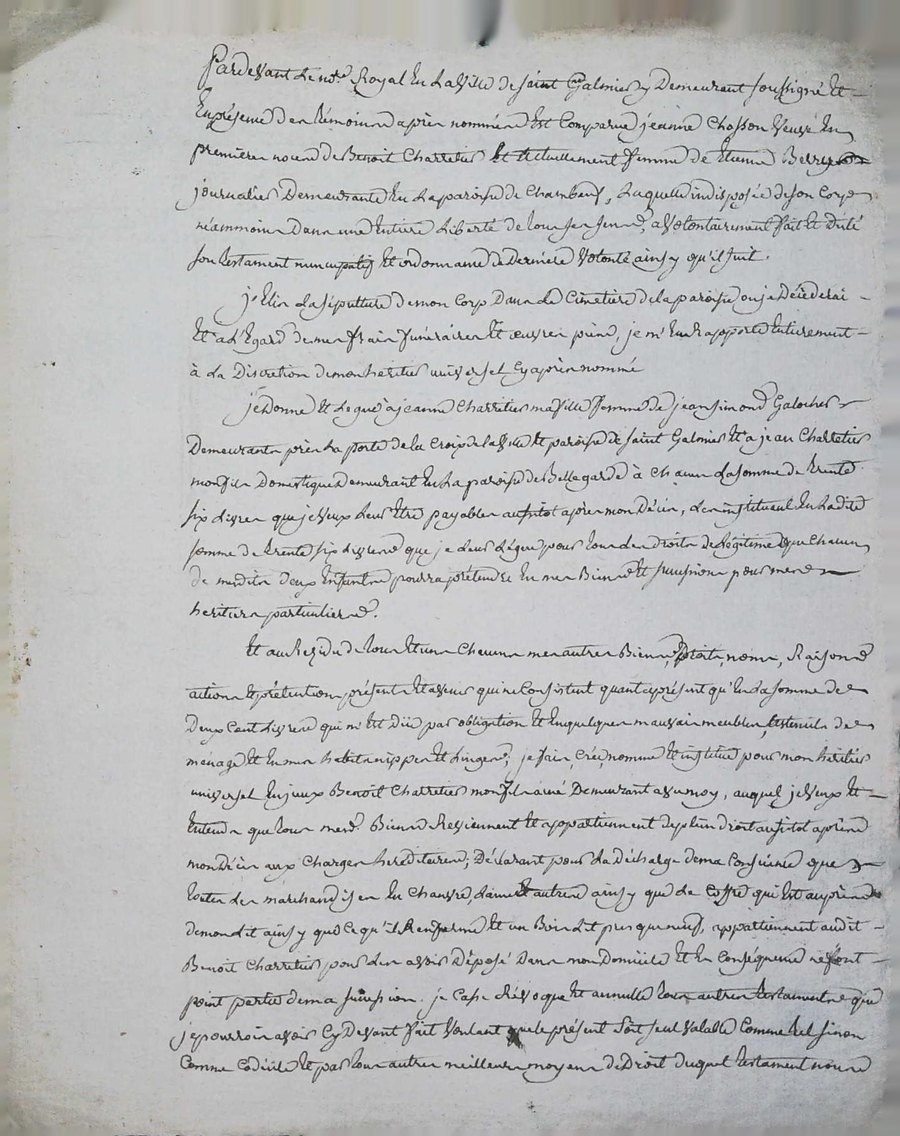 Pardevant Le no.re Royal En La Ville de saint Galmier y Demeurant soussigné Et
En présence des témoins après nommés Est Comparue jeanne Chosson veuve En
premieres noces de Benoit Charretier Et actuellement femme de Etienne
journalier Demeurante En La paroisse de Chambeuf, Laquelle indisposée de son Corps
néammoins Dans une Entiere Liberté de tous ses sens, a volontairement fait Et dicté
son testament nuncupatif Et ordonnance de Derniere volonté ainsy qu'il suit.
j'Elis La sépulture de mon Corps Dans Le Cimetiere de la paroisse ou je Décéderai
Et a L'Egard de mes frais funéraires Et œuvres pies, je m'En rapporte Entierement
à La Discretion de mon heritier universel Cy après nommé
je Donne Et Legue à jeanne Charretier ma fille femme de jean simond Galocher
Demeurants près La porte de la Croix de la ville Et paroisse de saint Galmier Et a jean Charretier
mon fils Domestique Demeurant En La paroisse de Bellegarde à Chacun La somme de trente
six Livres que je veux Leur Etre payables aussitot apres mon Décès, Les instituant En Ladite
somme de trente six Livres que je Leur Légue pour tous Les droits de Légitime que Chacun
de mesdits deux Enfants pourra prétendre En mes Biens Et succession pour mes
heritiers particuliers.
Et au Résidu de tous Et uns Chacuns mes autres Biens, Droits, noms, Raisons
actions Et prétentions présents Et avenir qui ne Consistent quant à présent qu'En La somme de
Deux Cent Livres qui m'Est Düe par obligation Et En quelques mauvais meubles, Ustensils de
ménage Et En mes habits nippes Et Linges; je fais, Crée, nomme Et institue pour mon héritier
universel Benoit Charretier mon fils ainé Demeurant avec moy, auquel je veux Et
Entends que tous mes Biens Reviennent Et appartiennent de plein droit aussitot après
mon Décès aux Charges hereditaires; Déclarant pour La décharge de ma Conscience que
toutes Les marchandises En Chanvre, Laines Et autres ainsy que Le Coffre qui Est auprès
de mon Lit ainsy que Ce qu'il Renferme Et un Bois de Lit presque neuf, appartiennent audit
Benoit Charretier pour Les avoir Déposé Dans mon Domicile Et En Conséquence ne font
point partie de ma succession. je Casse Révoque Et annulle tous autres testaments que
je pourrois avoir Cy Devant fait Voulant que le présent soit seul valable Comme tel sinon
Comme Codicile Et par tous autres meilleurs moyens de Droit duquel testament nous